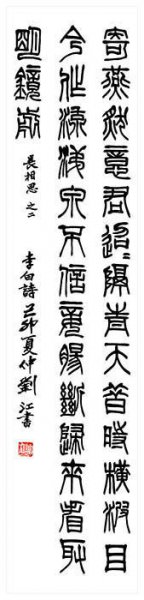 寄燕然意君迢〻隔青天昔時橫波目
今作流涕泉不信妾腸斷歸來看取
明鏡前
長相思 之二
李白詩 己卯夏仲劉江書